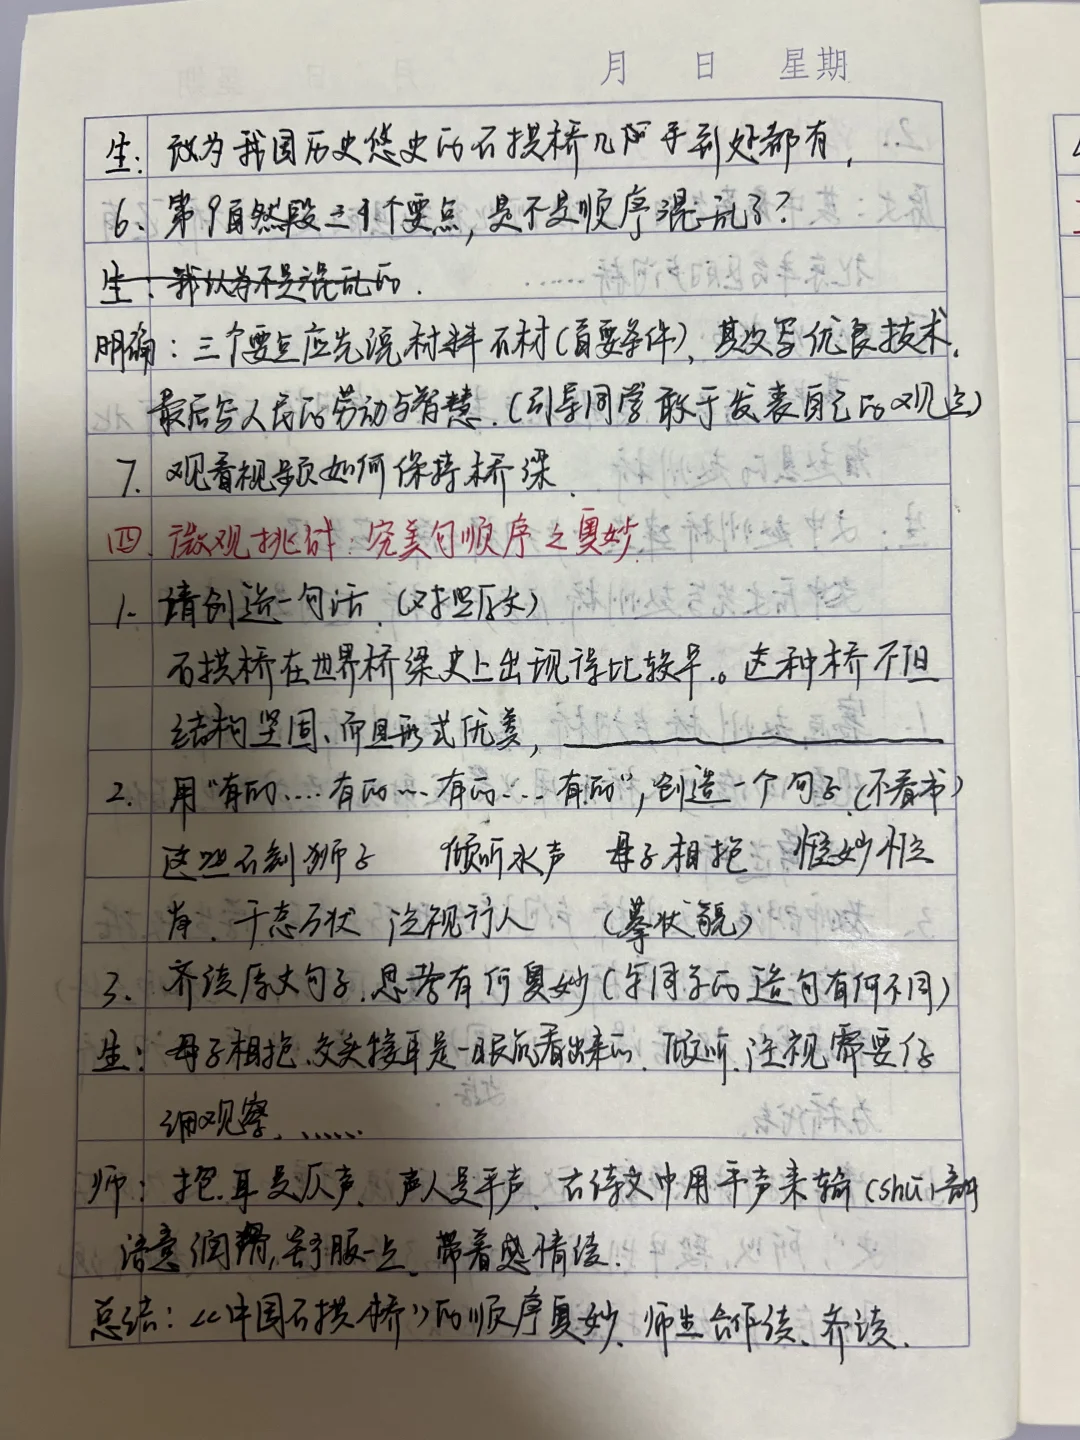 月 日 星期
生: 改为我国历史悠史的石拱桥几乎到处都有,
6、第9自然段三个要点,是不是顺序混乱了?
生:我以为不是混乱的.
明确:三个要点应先说材料石材(首要条件),其次写优良技术.
最后写人民的劳动与智慧.(引导同学敢于发表自己的观点)
7. 观看视频如何保持桥梁.
四.微观挑战.完美句顺序之奥妙.
1. 请创造一句话.(对照原文)
石拱桥在世界桥梁史上出现得比较早。这种桥不但
结构坚固、而且形式优美,
2. 用"有的....有的....有的....有的",创造一个句子.(不看书)
这些石刻狮子 倾听水声 母子相抱 惟妙惟
肖. 千态万状 注视行人 (摹状貌)
3. 齐读原文句子.思考有何奥妙(与同学的造句有何不同)
生:母子相抱.交头接耳是一眼能看出来的.倾听.注视需要仔
细观察.……
师:抱.耳是仄声.声人是平声.古诗文中用平声来输(shū)
语意润滑,舒服一点.带着感情读.
总结:《中国石拱桥》的顺序奥妙.师生合作读、齐读.